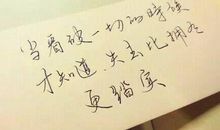 当看破一切的时候
才知道，失去比拥有
更踏实